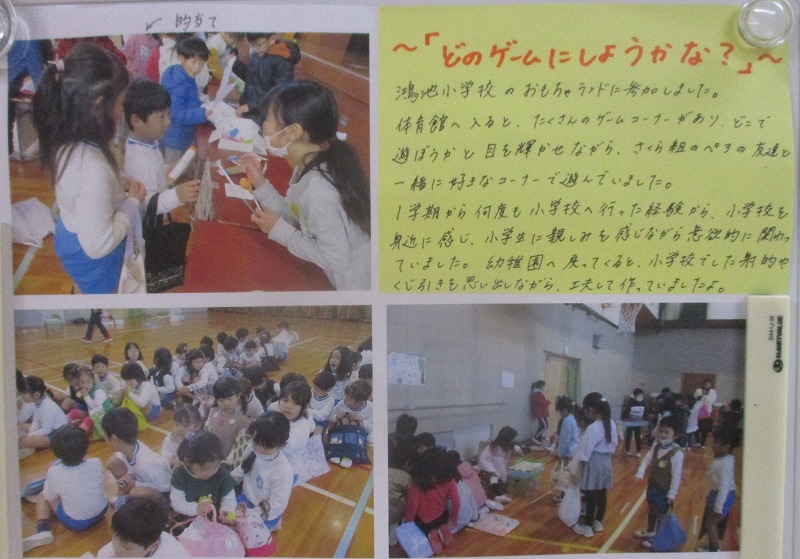 ✓ 的当て
～「どのゲームにしようかな？」～
鴻池小学校のおもちゃランドに参加しました。
体育館へ入ると、たくさんのゲームコーナーがあり、どこで
遊ぼうかと目を輝かせながら、さくら組のペアの友達と
一緒に好きなコーナーで遊んでいました。
1学期から何度も小学校へ行った経験から、小学校を
身近に感じ、小学生に親しみを感じながら意欲的に関わっ
ていました。幼稚園へ戻ってくると、小学校でした射的や
くじ引きを思い出しながら、工夫して作っていましたよ。